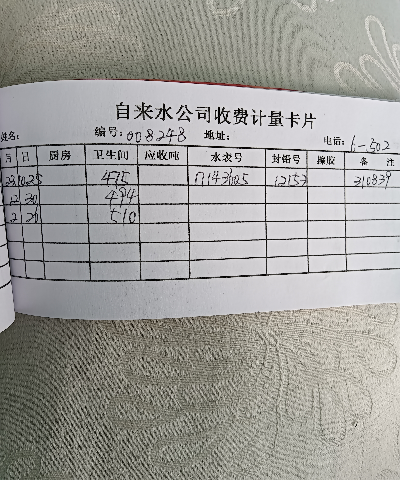 自来水公司收费计量卡片
姓名: 编号: 008248 地址: 电话: 6-502
月 日 厨房 卫生间 应收吨 水表号 封铅号 撤胶 备 注
475 12153 310839
12 30 494
2 29 510